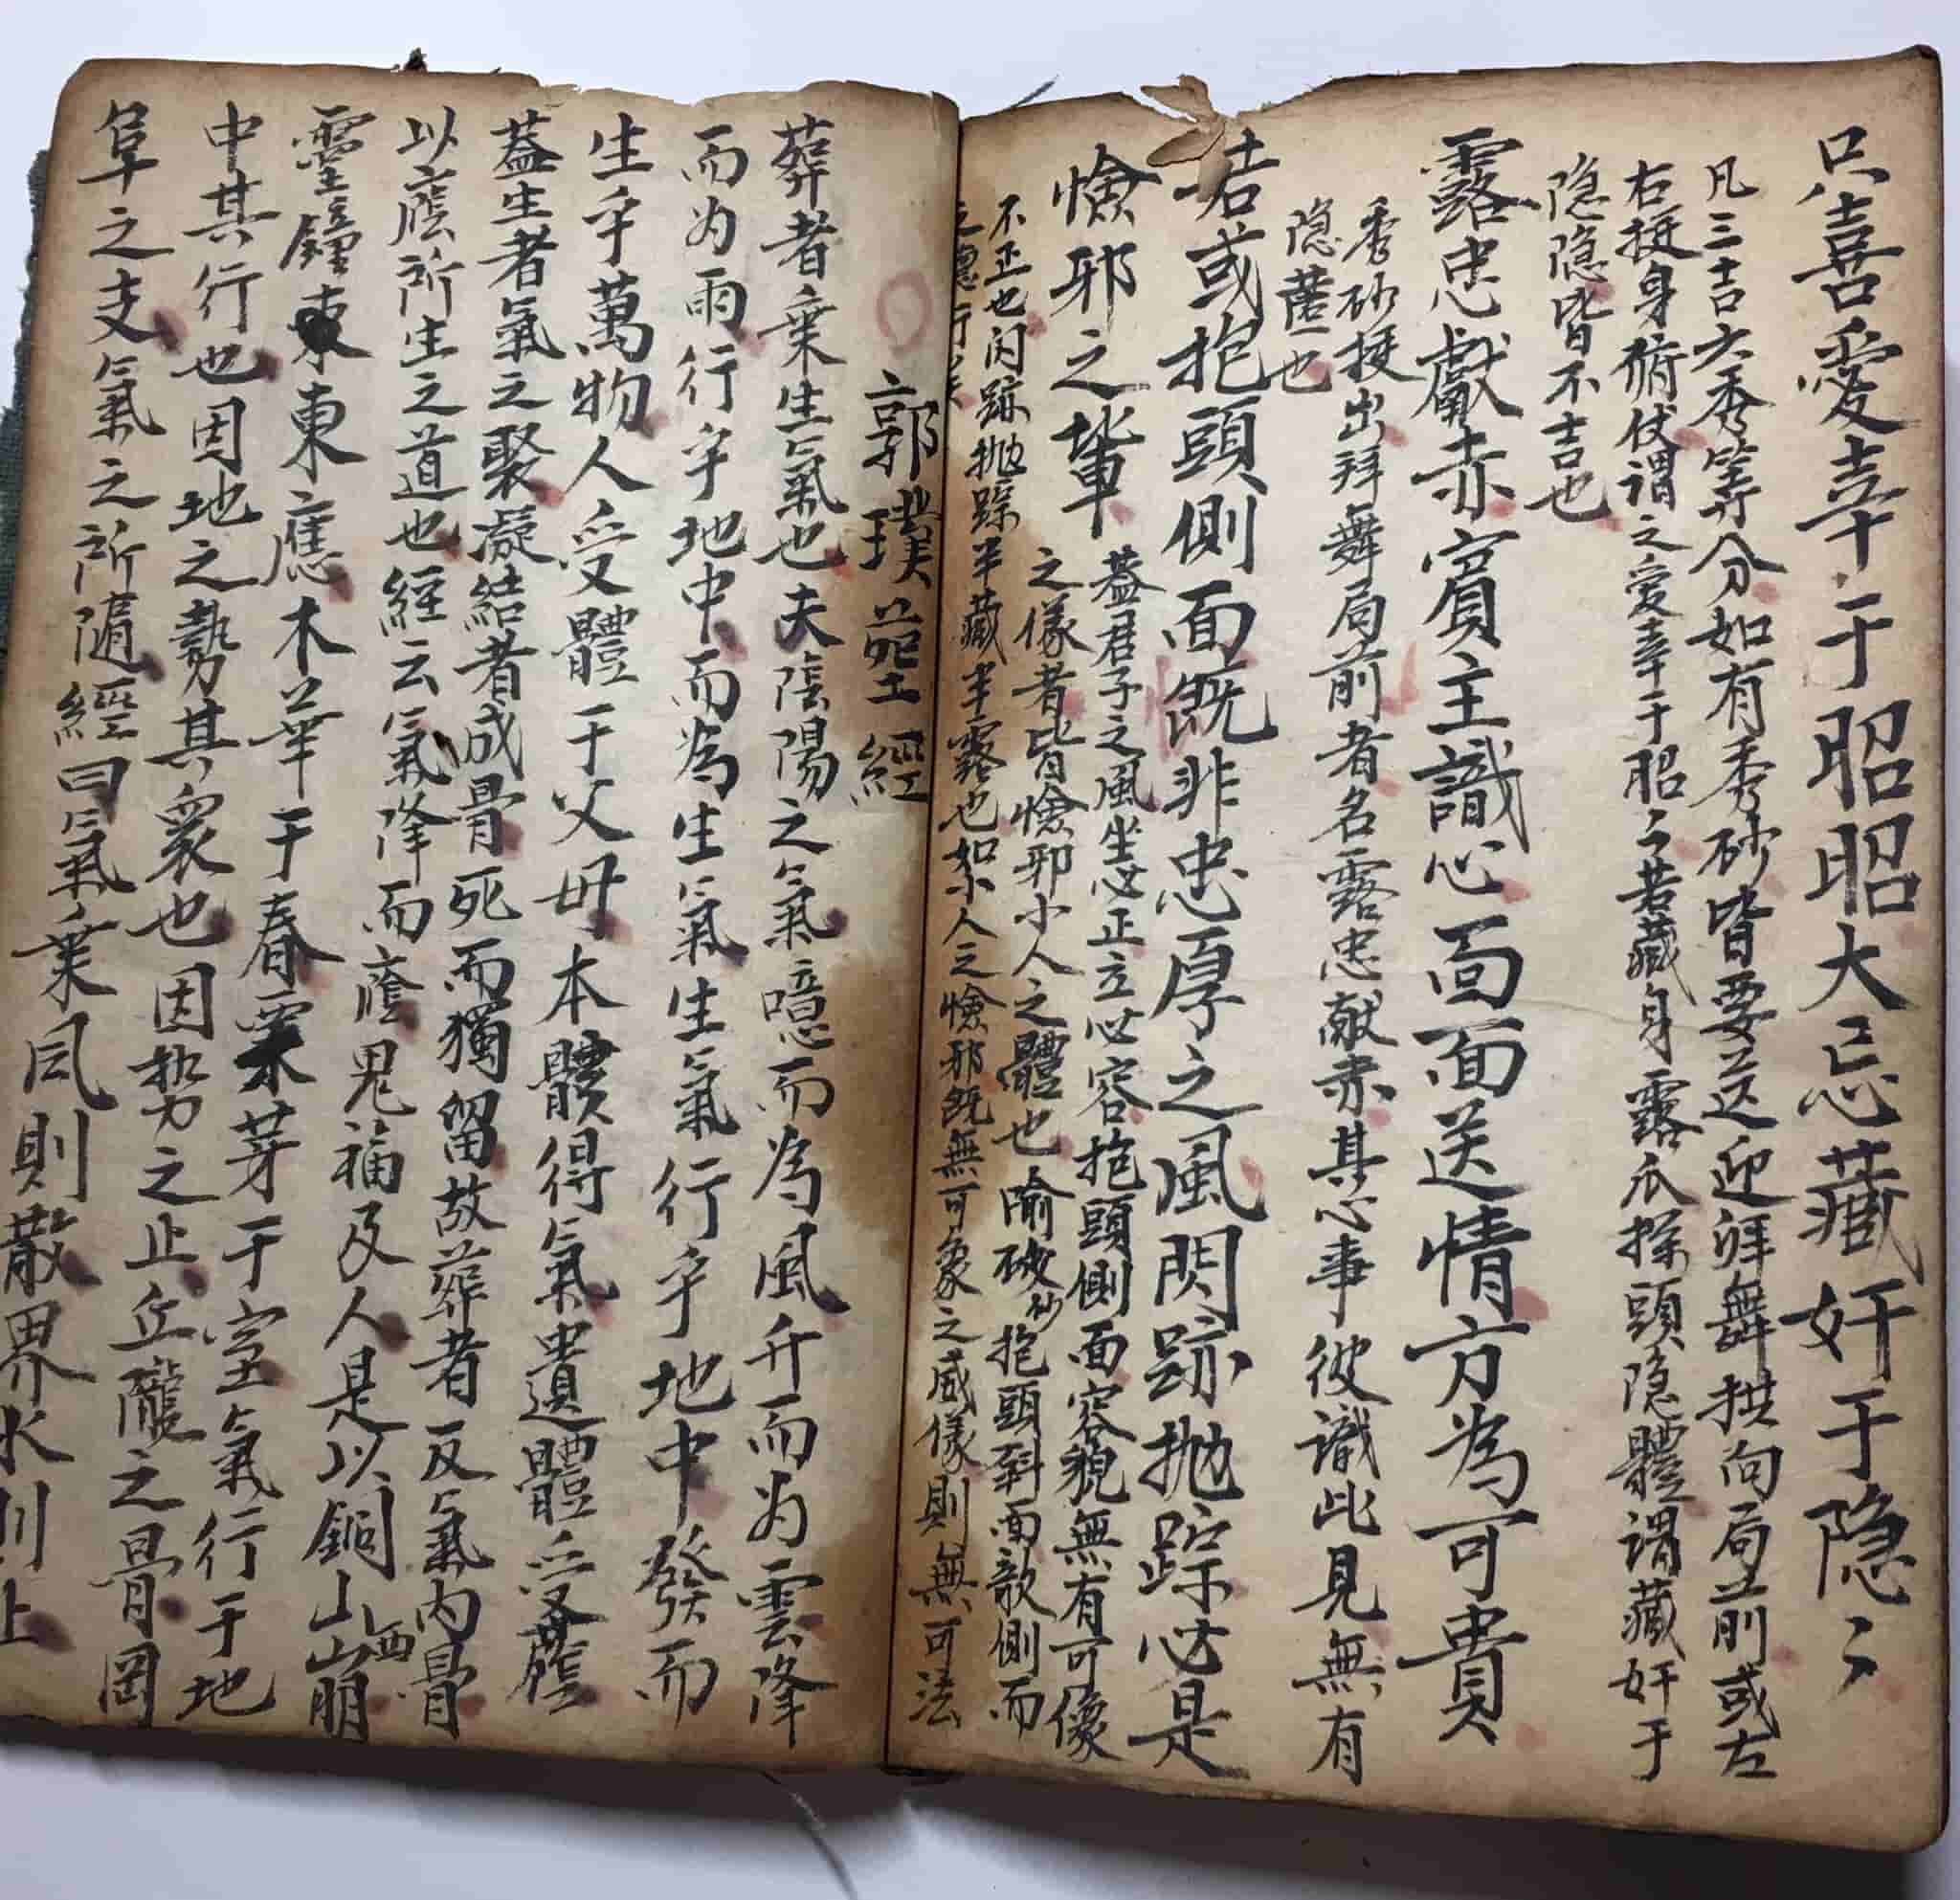 只喜愛幸于昭昭大忌藏奸于隐〻
凡三吉六秀等分如有秀砂皆要送迎拜舞拱向局前或左
右挺身俯伏谓之爱幸于昭〻若藏身露爪探頭隐體谓藏奸于
隐隐皆不吉也
露忠獻赤賓主識心面面送情方為可貴
秀砂挺出拜舞局前者名露忠献赤其心事彼識此見無有
隐蔽也
若或抱頭側面既非忠厚之風閃跡抛踪必是
憸邪之輩
蓋君子之風坐必正立必容抱頭側面容貌無有可像
之儀者皆憸邪小人之體也喻破砂抱頭斜面欹側而
不正也闪跡抛踪半藏半露也如小人之憸邪既無可象之威儀則無可法
之德行矣
郭璞葬經
葬者乗生氣也夫陰陽之氣噫而為風升而为雲降
而为雨行乎地中而為生氣生氣行乎地中發而
生乎萬物人受體于父毋本骸得氣遺體受蔭
蓋生者氣之聚凝結者成骨死而獨留故葬者反氣内骨
以蔭所生之道也經云氣降而蔭鬼福及人是以銅山西崩
靈鐘東應木華于春栗芽于室氣行于地
中其行也因地之勢其聚也因势之止丘隴之骨岡
阜之支氣之所隨經曰氣乗风則散界水則止